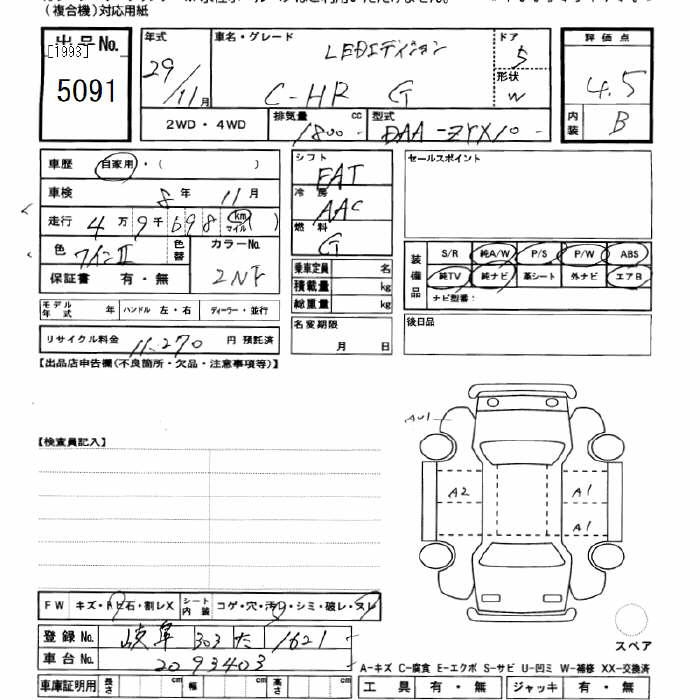 (複合機)対応用紙
出品No.
[1993]
5091
年式
29/11月
車名・グレード
LEDエディション
C-HR G
ドア
5
形状
W
評価点
4.5
内装
B
2WD・4WD
排気量
1800 cc
型式
DAA-ZYX10
車歴 自家用・( )
車検 8年 11月
走行 4万9千698 km マイル ( )
色 ワインII
色替
カラーNo.
2NF
保証書 有・無
モデル年式 年
ハンドル 左・右
ディーラー・並行
リサイクル料金 11,270 円 預託済
シフト
FAT
冷房
AAC
燃料
G
乗車定員 名
積載量 kg
総重量 kg
名変期限
月 日
セールスポイント
装備品
S/R 純A/W P/S P/W ABS
純TV 純ナビ 革シート 外ナビ エアB
ナビ型番:
後日品
【出品店申告欄(不良箇所・欠品・注意事項等)】
【検査員記入】
A2
A1
A1
FW キズ・トビ石・割レX
シート内装 コゲ・穴・汚レ・シミ・破レ・スレ
登録No. 岐阜 303 た 1621
車台No. 2093403
スペア
A-キズ C-腐食 E-エクボ S-サビ U-凹ミ W-補修 XX-交換済
車庫証明用 長さ cm 幅 cm 高さ cm
工具 有・無
ジャッキ 有・無